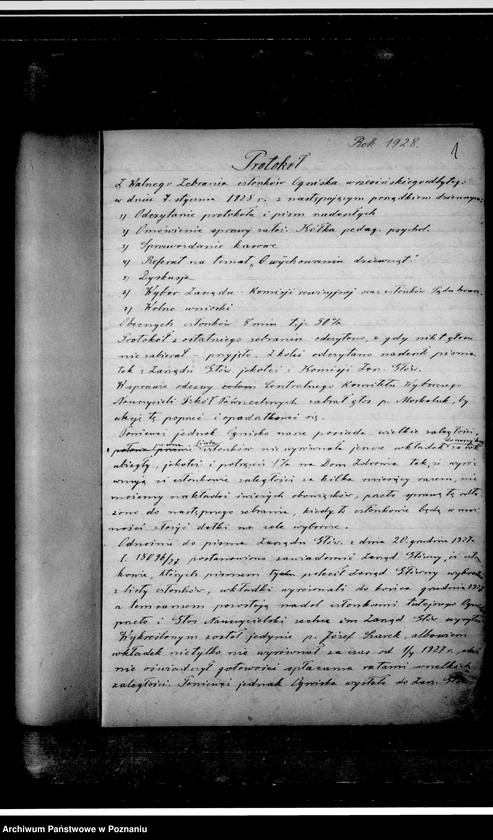 Rok 1928.
1
Protokół
Z Walnego Zebrania członków Ogniska wrzesińskiego odbytego
w dniu 7. stycznia 1928 r. z następującym porządkiem dziennym:
1) Odczytanie protokołu i pism nadesłych
2) Omówienie sprawy założ. Kółka pedag. psychol.
3) Sprawozdanie kasowe
4) Referat na temat „O wychowaniu dziewcząt"
5) Dyskusja
6) Wybór Zarządu Komisji rewizyjnej oraz członków Sądu honor.
7) Wolne wnioski
Obecnych członków 8 min tj. 50%
Protokół z ostatniego zebrania odczytano, a gdy nikt głosu
nie zabierał przyjęto. Z kolei odczytano nadesłe pisma
tak z Zarządu Głów. jakoteż i Komisji Zar. Głów.
W sprawie odezwy Centralnego Komitetu Wyborczego
Nauczycieli Szkół Powszechnych zabrał głos p. Moskaluk, by
akcję tę poprzeć i opodatkować się.
Ponieważ jednak Ognisko nasze posiada wielkie zaległości,
członków nie wyrównała jeszcze wkładek za rok
ubiegły, jakoteż i potrąceń 1% na kom. Zdrowia tak, iż wyrów-
nują ci członkowie zaległości za kilka miesięcy razem, nie
możemy nakładać świeżych obowiązków, przeto sprawę tę odło-
żono do następnego zebrania, kiedy to członkowie będą w moż-
ności złożyć datki na cele wyborcze.
Odnośnie do pisma Zarządu Głów. z dnia 20. grudnia 1927.
L. 18096/27 postanowiono zawiadomić Zarząd Główny, iż czło-
kowie, których pismem tychże polecił Zarząd Główny wykreślić
z listy członków, wkładki wyrównali do końca grudnia 1927
a tem samem pozostają nadal członkami tutejszego Ogniska
przeto i Głos Nauczycielski zechce im Zarząd Głów.
Wykreślonym został jedynie p. Józef Szarek, albowiem
wkładek nietylko nie wyrównał za czas od 1/9 1927 r.,
nie oświadczył gotowości spłacania ratami wszelkich
zaległości. Ponieważ jednak Ognisko wysłało do Zarz. Głów.
Archiwum Państwowe w Poznaniu